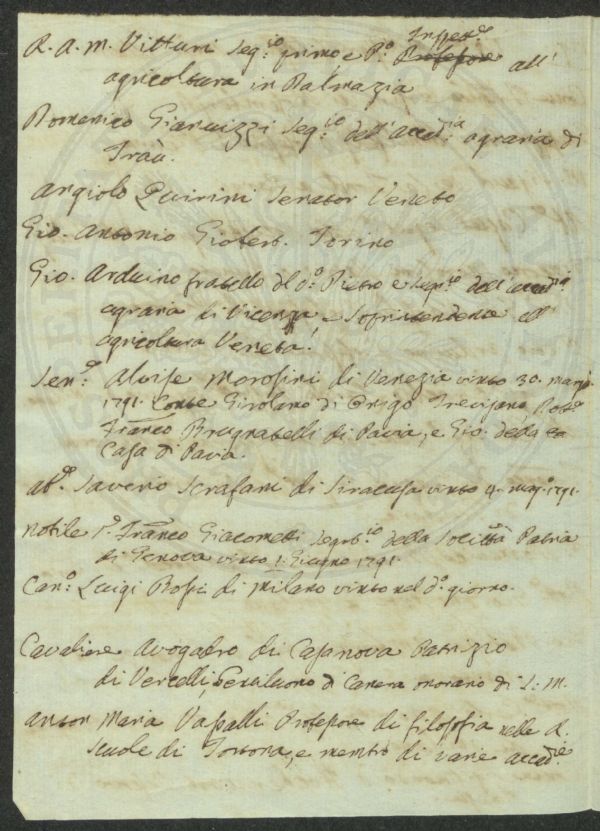 R. A. M. Vitturi Seg.io primo e P.o Professore Inspet.e all'
agricoltura in Dalmazia
Domenico Gianuizzi Seg.io dell'accad.ia agraria di
Traù.
Angiolo Quirini Senator Veneto
Gio. Antonio Giobert. Torino
Gio. Arduino fratello del d.o Pietro e Seg.io dell'accad.ia
agraria di Vicenza e Soprintendente all'
agricoltura Veneta.
Sen.e Aloise Morosini di Venezia vinto 30. marzo
1791. Conte Girolamo di Onigo Trevisano, Dot.e
Fran.co Brugnatelli di Pavia, e Gio. della
Casa di Pavia.
ab.e Saverio Scrafani di Siracusa vinto 4. mag.o 1791.
Nobile S.r Fran.co Giacometti Segret.io della Società Patria
di Genova vinto 1. Giugno 1791.
Can.o Luigi Bossi di Milano vinto nel d.o giorno.
Cavaliere Avogadro di Casanova Patrizio
di Vercelli, Gentiluomo di Camera onorario di S. M.
Anton Maria Vassalli Professore di filosofia nelle R.
Scuole di Tortona, e membro di varie accad.ie